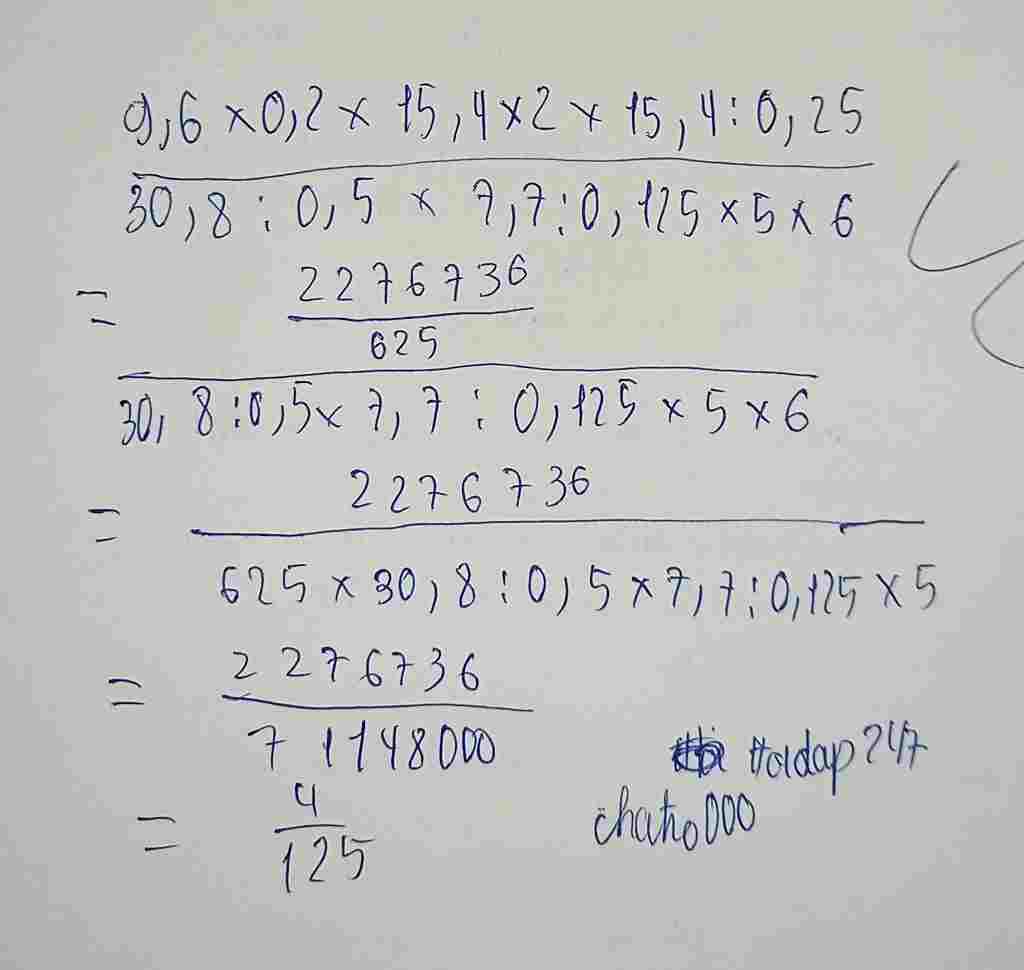 9,6 × 0,2 × 15,4 × 2 × 15,4 : 0,25
30,8 : 0,5 × 7,7 : 0,125 × 5 × 6
= 2276736
625
30,8 : 0,5 × 7,7 : 0,125 × 5 × 6
= 2276736
625 × 30,8 : 0,5 × 7,7 : 0,125 × 5
= 2276736
71148000
= 4
125
Hoidap247